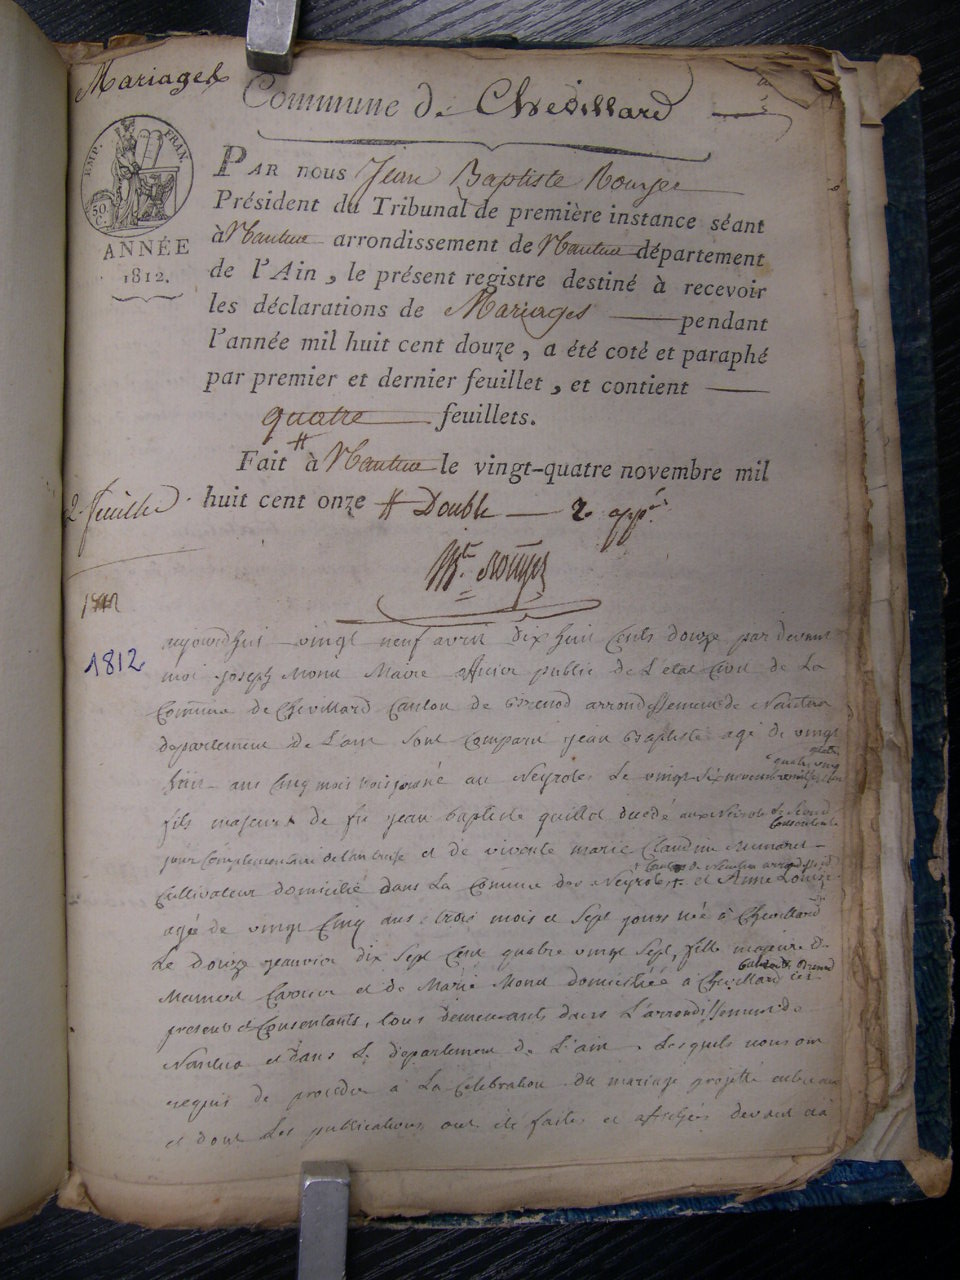 Mariages
Commune de Chevillard
EMP. FRAN.
50 C.
ANNÉE
1812.
PAR nous Jean Baptiste Rouyer
Président du Tribunal de première instance séant
à Nantua arrondissement de Nantua département
de l'Ain, le présent registre destiné à recevoir
les déclarations de Mariages pendant
l'année mil huit cent douze, a été coté et paraphé
par premier et dernier feuillet, et contient
quatre feuillets.
Fait à Nantua le vingt-quatre novembre mil
huit cent onze # Double — 2
2 feuille
1812
1812
aujourdhui vingt neuf avril dix huit Cents douze par devant
moi joseph Mond Maire officier public de L'etat Civil de La
Commune de Chevillard Canton de Brenod arrondissement de Nantua
departement de L'ain sont Comparu jean Baptiste agé de vingt
huit ans Cinq mois trois né au Neyroles Le vingt six novembre
quatre vingt
fils majeur de feu jean baptiste decédé aux Neirole
jour Complementaire de l'an treise et de vivante marie Claudine
Cultivateur domicilié dans La Commune des Neyroles + et Anne Louise
+ Canton de Nantua
agée de vingt Cinq ans trois mois et Sept jours née à Chevillard
Le douze jeanvier dix Sept Cent quatre vingt Sept, fille majeure de
et de Marie Mond domiciliéé à Chevillard
presents et Consentants, tous demeurants dans L'arrondissement de
Nantua et dans Le departement de L'ain. Lesquels nous ont
requis de proceder à La Celebration du mariage projetté entre eux
et dont Les publications ont été faites et affichées devant